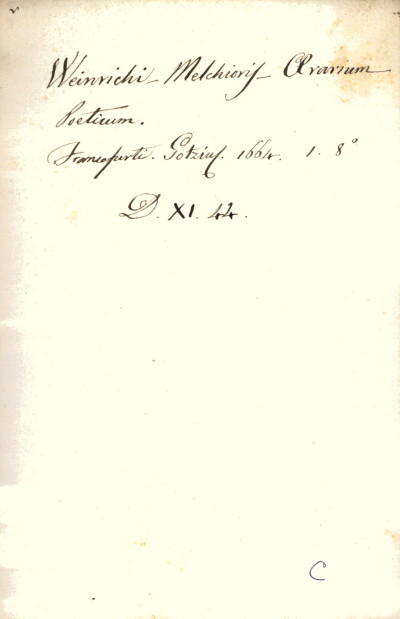 Weinrichi Melchioris Ærarium
Poeticum.
Francofurti. Gotzius. 1664. 1. 8°
D. XI. 44.
C